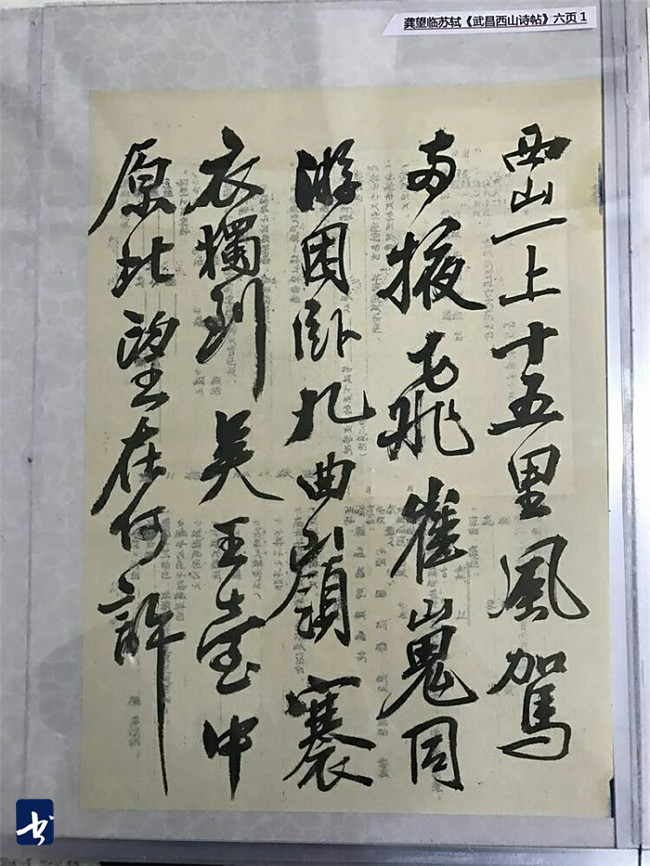 龚望临苏轼《武昌西山诗帖》六页1
西山一上十五里風駕
两掖飛崔嵬同
游困卧九曲嶺褰
衣獨到吴王臺中
原北望在何許